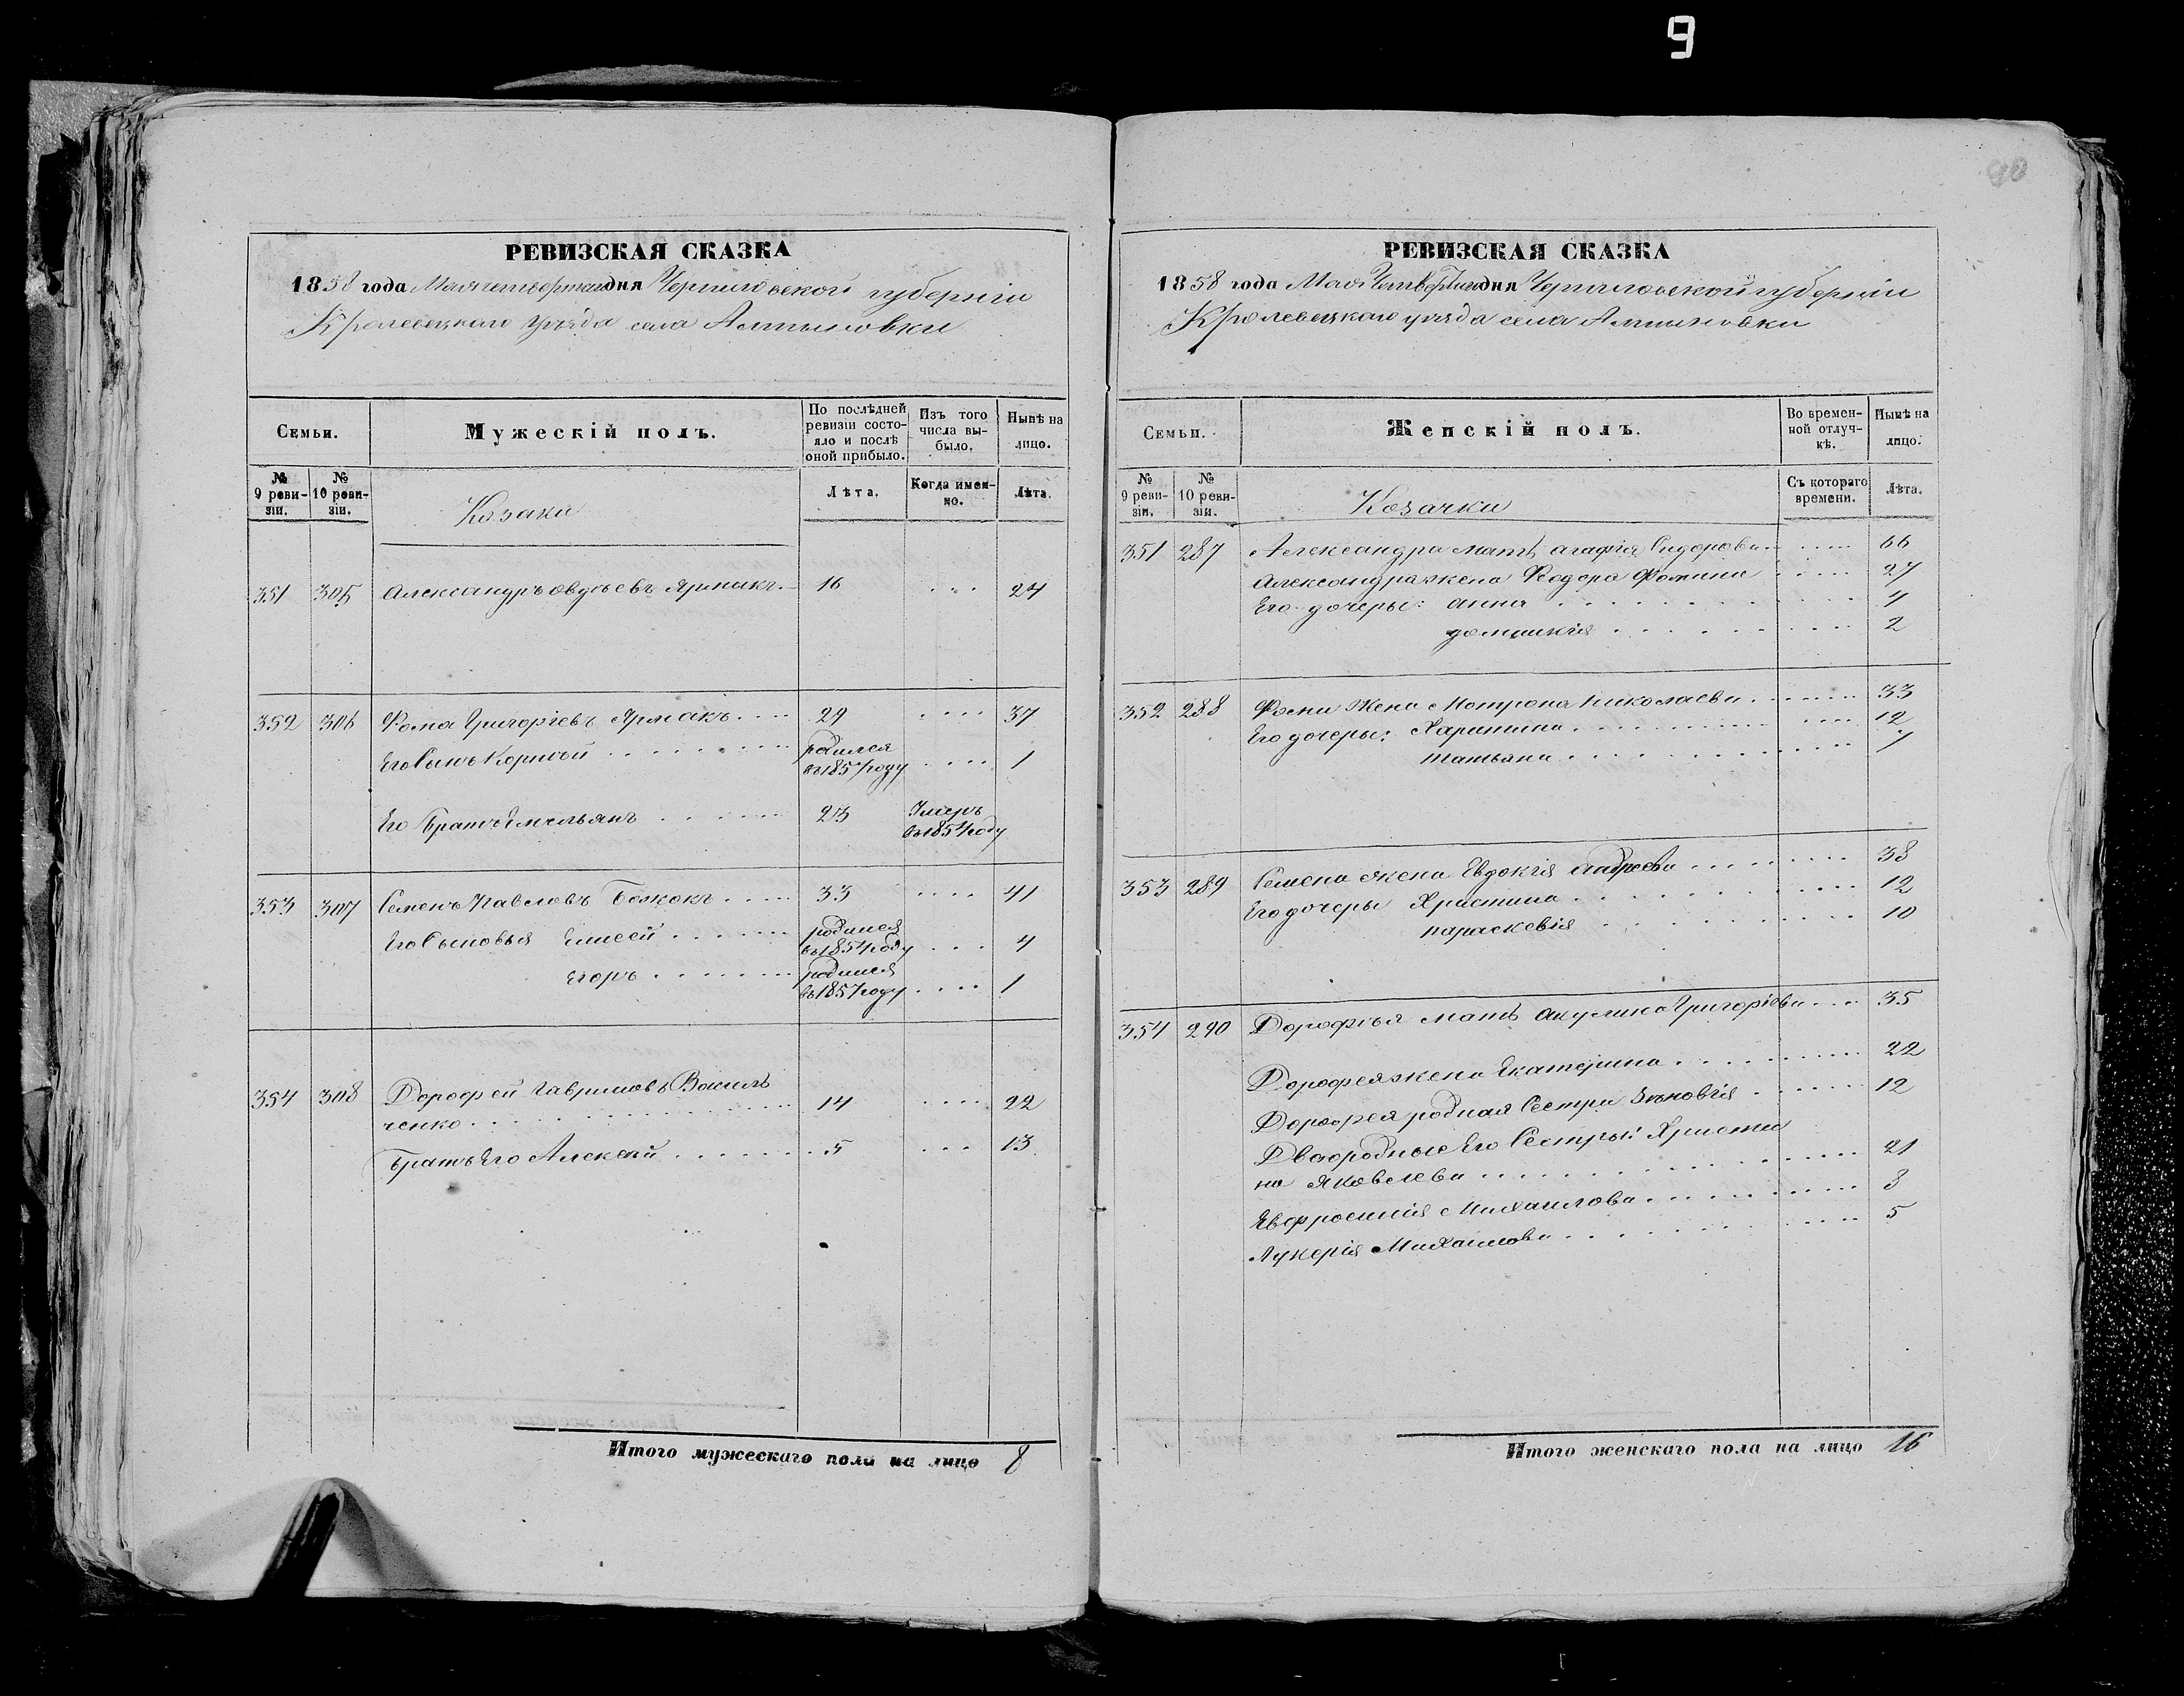 9
90
РЕВИЗСКАЯ СКАЗКА
1858 года Мая четвертаго дня Черниговской губерніи
Кролевецкаго уѣзда села Алтыновки
Семьи.
Мужескій полъ.
По послѣдней ревизіи состояло и послѣ оной прибыло.
Изъ того числа выбыло.
Нынѣ на лицо.
№ 9 ревизіи.
№ 10 ревизіи.
Козаки
Лѣта.
Когда именно.
Лѣта.
351 305 Александръ Овдѣевъ Ярмакъ 16 24
352 306 Фома Григоріевъ Ярмакъ 29 37
Его Сынъ Корнѣй родился въ 1857 году 1
Его Братъ Емельянъ 23 Умеръ въ 1854 году
353 307 Семенъ Павловъ Божокъ 33 41
Его Сыновья Елисей родился въ 1854 году 4
Егоръ родился въ 1857 году 1
354 308 Дорофей Гавриловъ Василь
ченко 14 22
Братъ Его Алексѣй 5 13
Итого мужескаго пола на лицо 8
РЕВИЗСКАЯ СКАЗКА
1858 года Мая Четвертаго дня Черниговской губерніи
Кролевецкаго уѣзда села Алтыновки
Семьи.
Женскій полъ.
Во временной отлучкѣ.
Нынѣ на лицо.
№ 9 ревизіи.
№ 10 ревизіи.
Козачки
Съ котораго времени.
Лѣта.
351 287 Александра мать агафія Сидорова 66
Александра жена Феодора Фомина 27
Его дочеры: анна 4
домникія 2
352 288 Фомы Жена Мотрона Николаева 33
Его дочеры: Харитина 12
татьяна 7
353 289 Семена жена Евдокія андреева 38
Его дочеры Христина 12
параскевія 10
354 290 Дорофѣя мать Акулина Григоріева 35
Дорофея жена Екатерина 22
Дорофея родная Сестра Зѣновія 12
Двоюродные Его Сестры: Христи
на Яковлева 21
Евфросинія Михаилова 8
Лукерія Михаилова 5
Итого женскаго пола на лицо 16